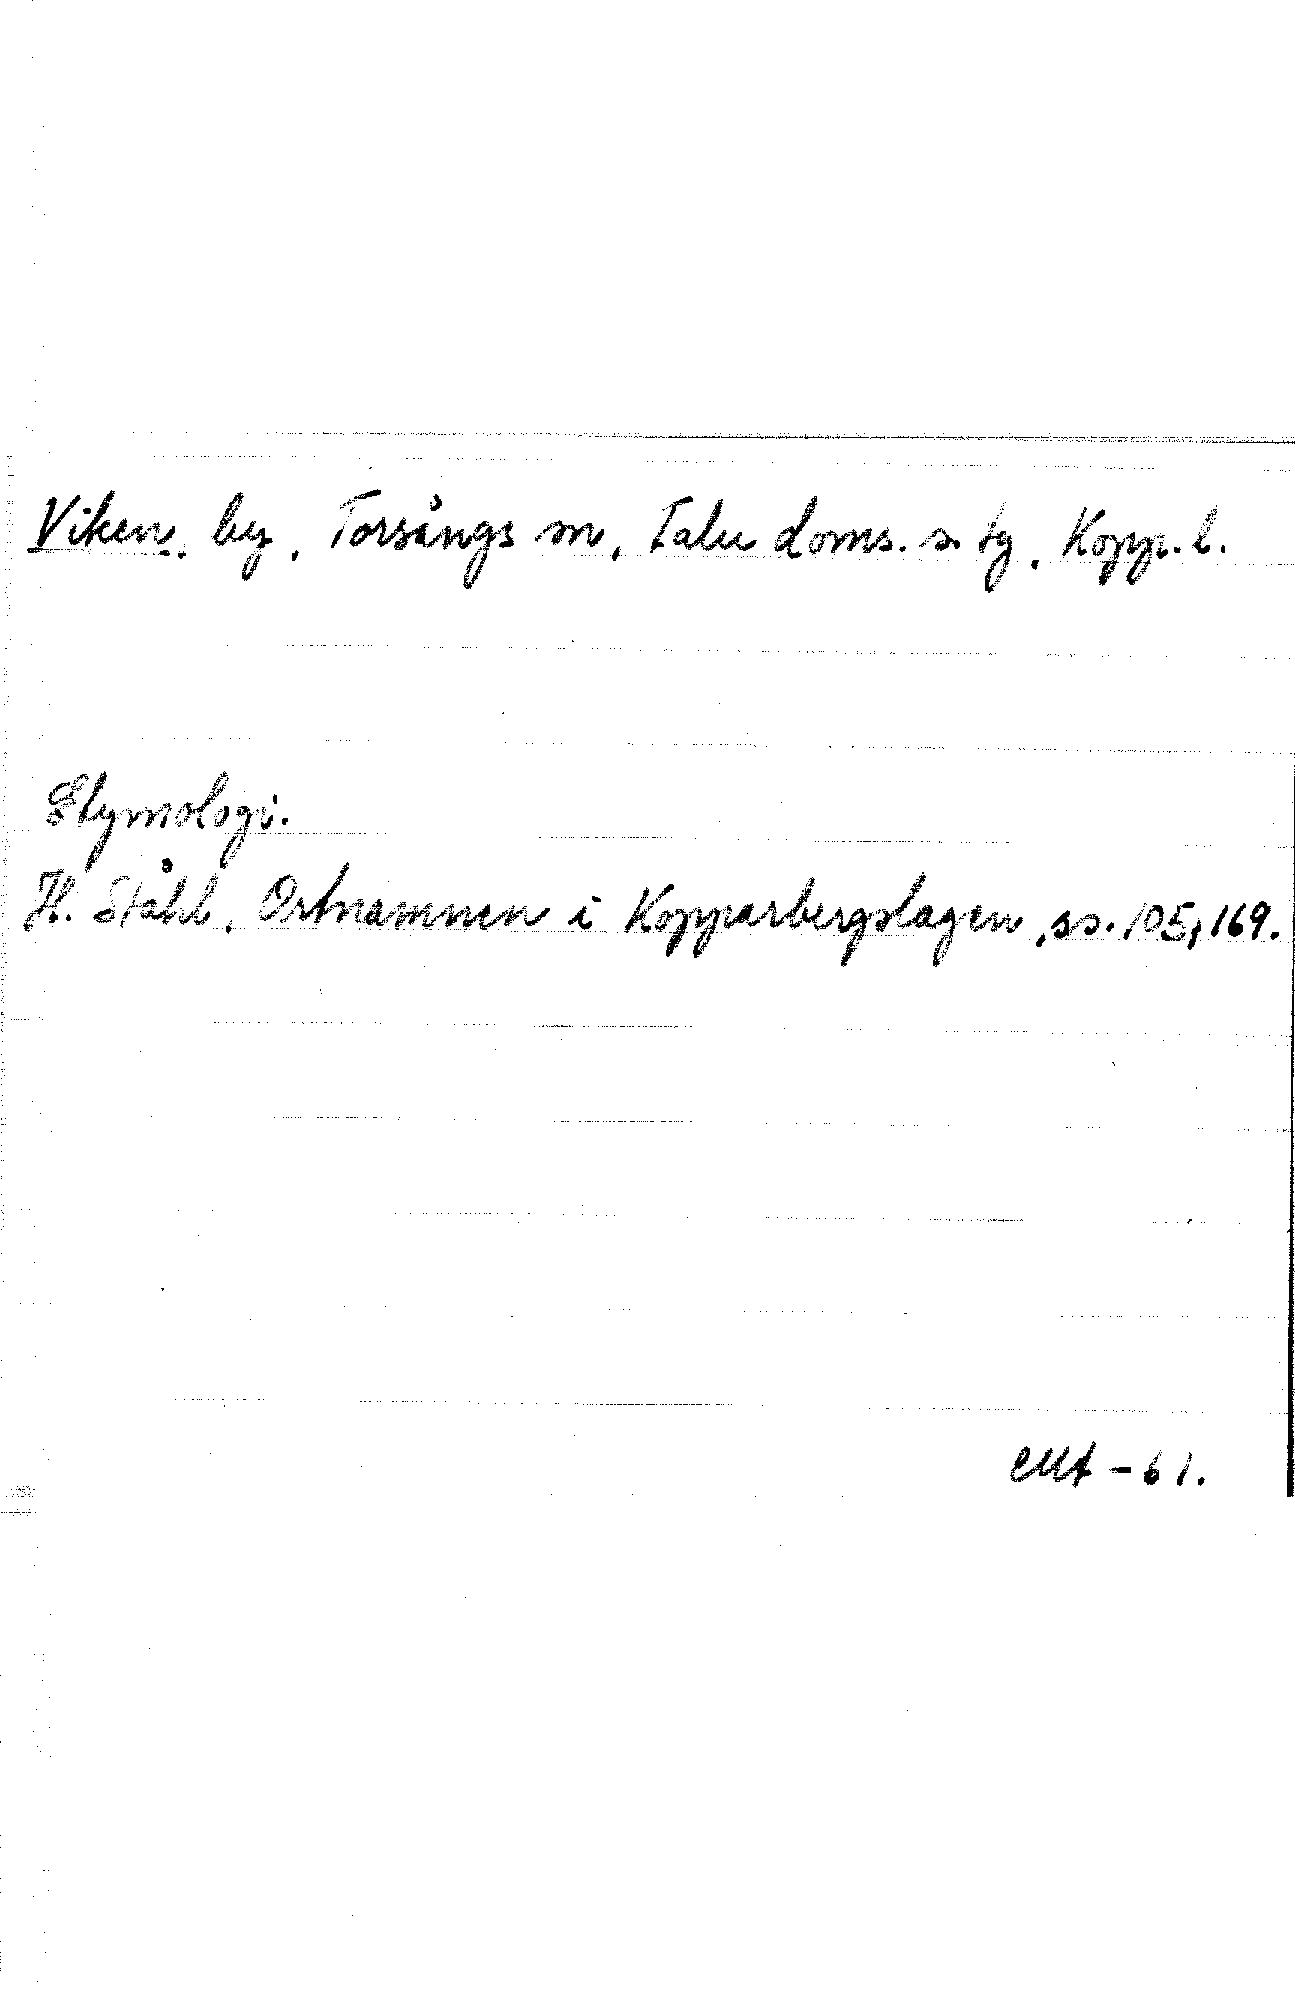 Viken, by, Torsångs sn, Falu doms. s. tg, Kopp. l.
Etymologi.
H. Ståhl, Ortnamnen i Kopparbergslagen, ss. 105, 169.
-61.